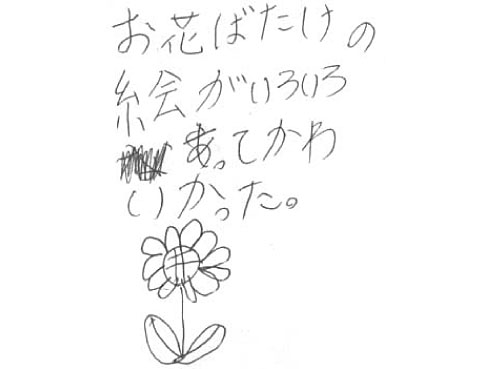 お花ばたけの
絵がいろいろ
あってかわ
いかった。